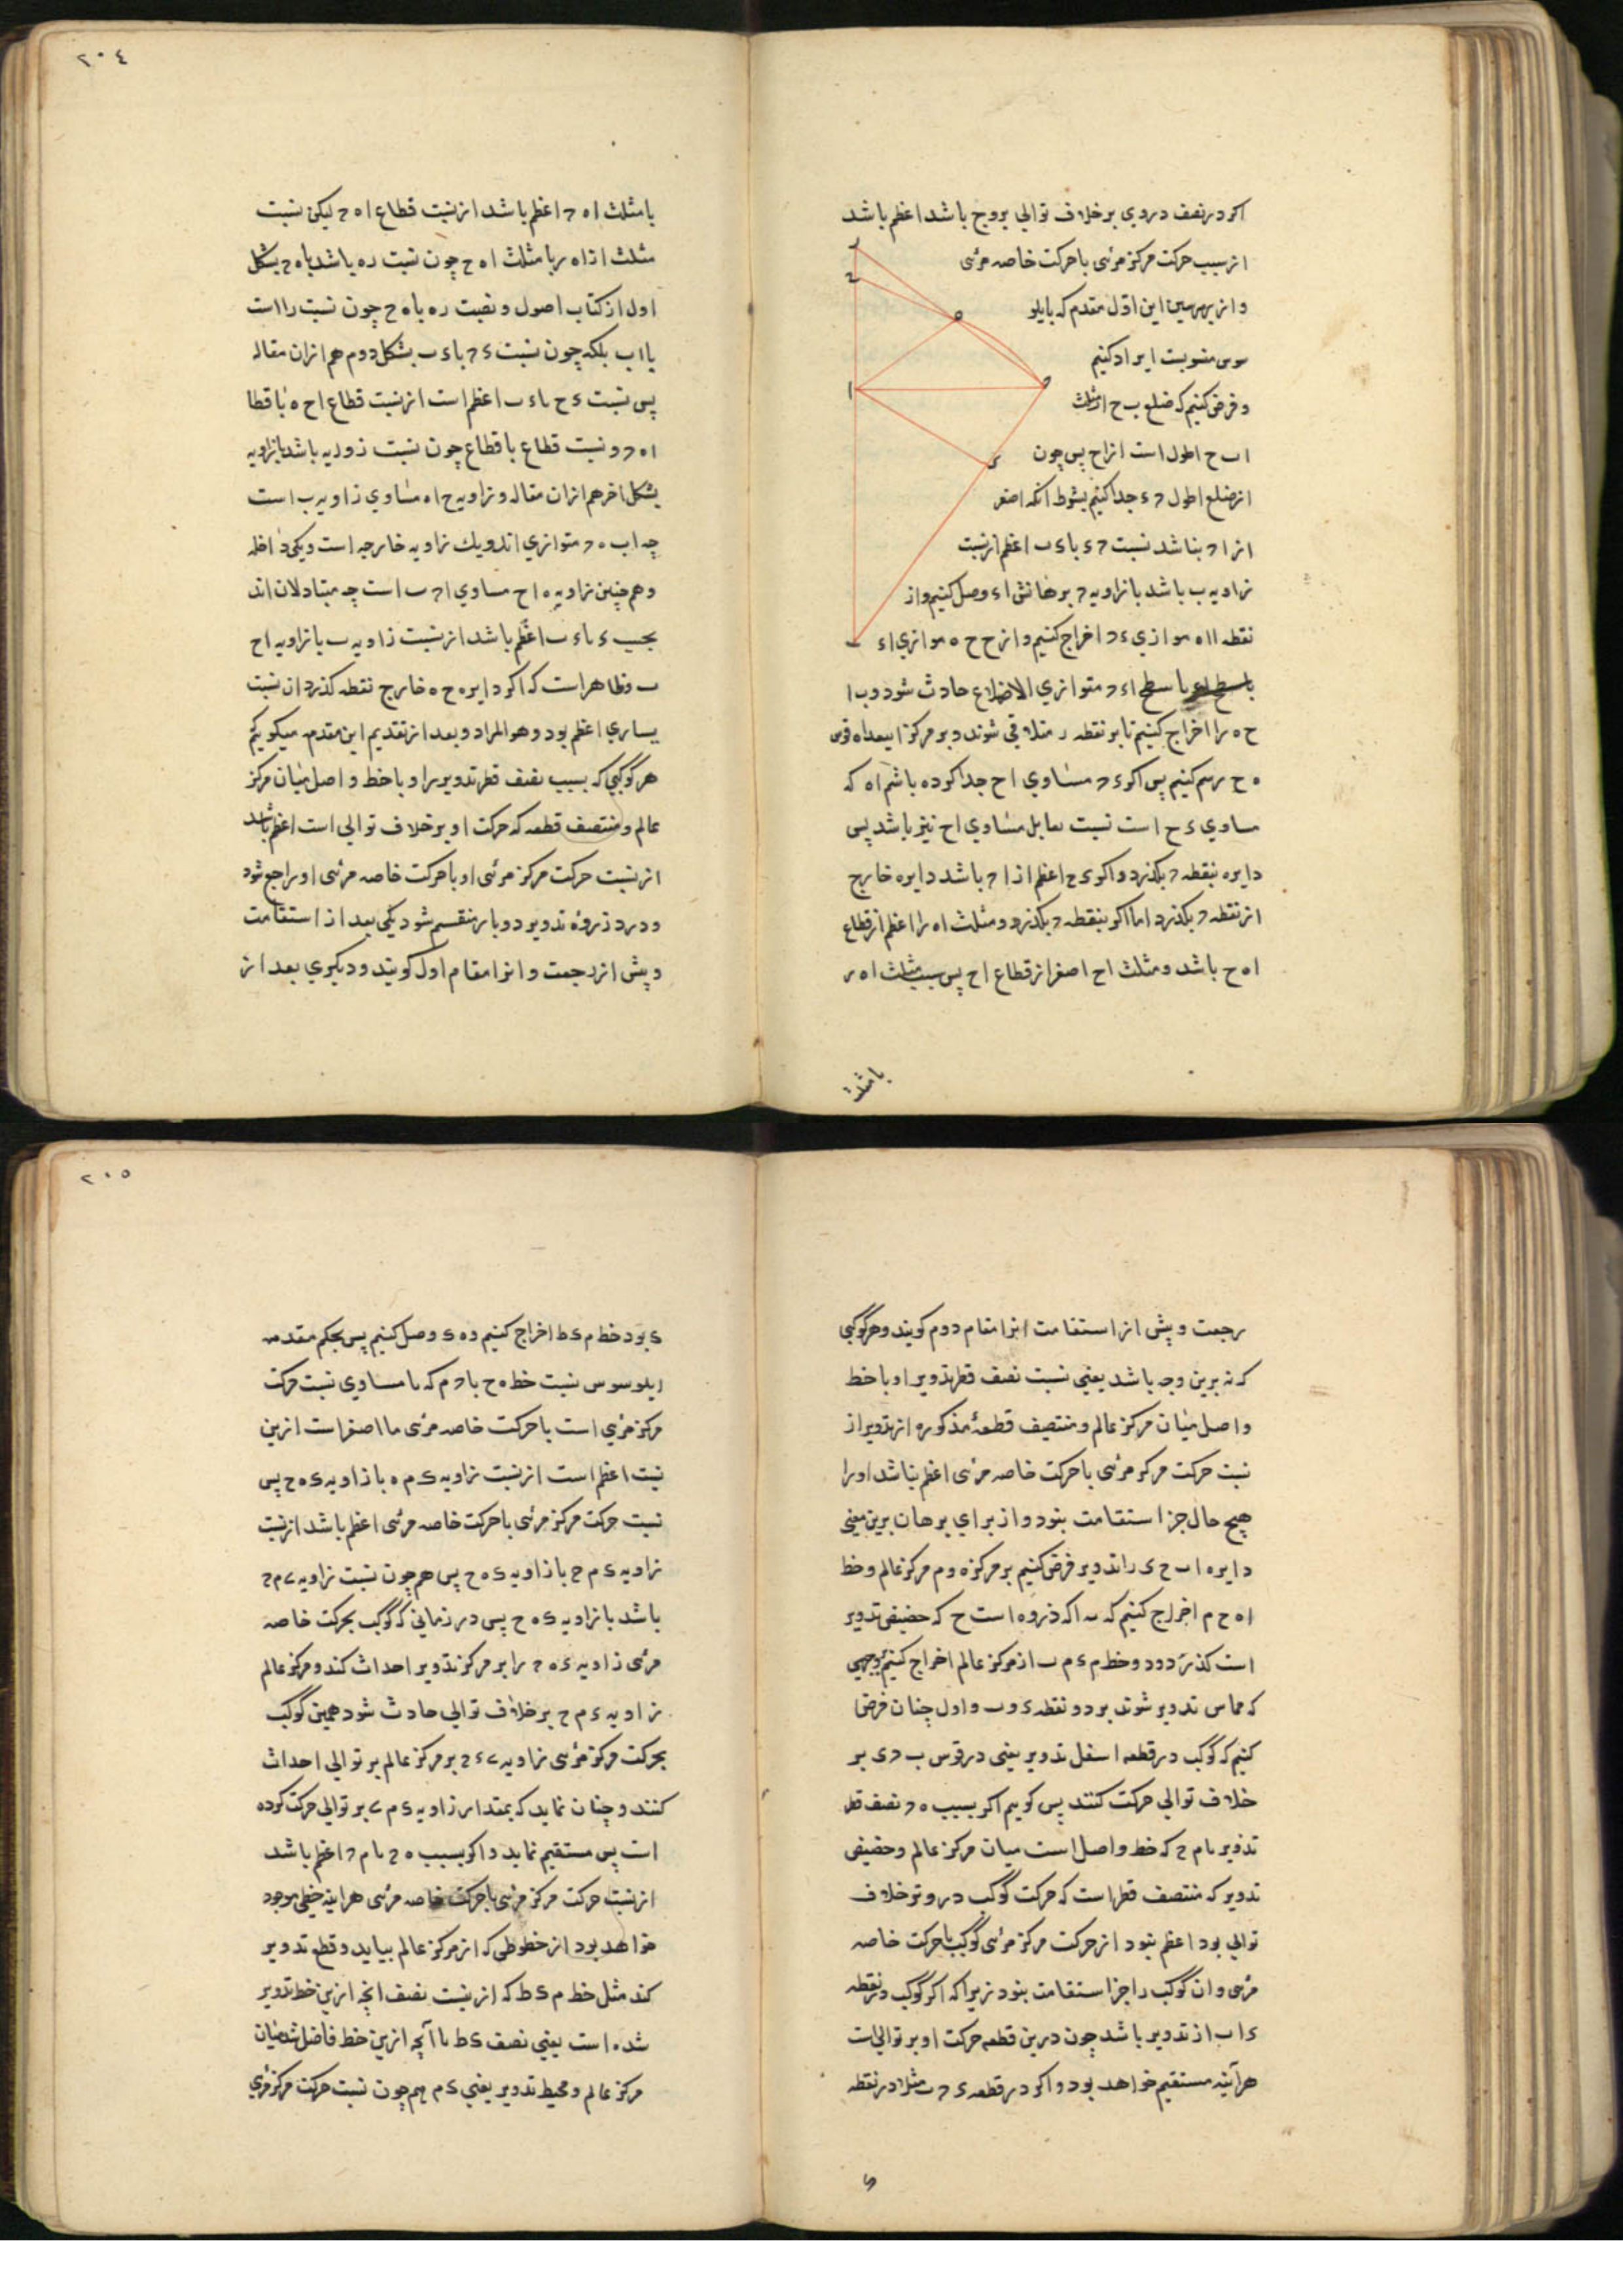 اکر در نصف دروی بر خلاف توالی بروج باشد اعظم باشد
از سبب حرکت مرکز مرئی با حرکت خاصه مرئی
و از بهر این اول مقدم که بابلو
سوس منسوبست ایراد کنیم
و فرض کنیم که ضلع ب ح از مثلث
ا ب ح اطول است از ا ح پس چون
از ضلع اطول ح ء جدا کنیم بشرط آنکه اصغر
از ا ح نباشد نسبت ح ء با ء ب اعظم از نسبت
زاویه ب باشد با زاویه ح برهانش ا ء وصل کنیم و از
نقطه ا ا ه موازی ء ح اخراج کنیم و از ح ح ه موازی ا ء
تا سطح ا ء ح متوازی الاضلاع حادث شود و ب ا
ح ه را اخراج کنیم تا بر نقطه ر متلاقی شوند و بر مرکز ا ببعد ا ه قوس
ه ح رسم کنیم پس اکر ء ح مساوی ا ح جدا کرده باشیم ا ه که
مساوی ء ح است نسبت مساوی ا ح نیز باشد پس
دایره بنقطه ح بکذرد و اکر ء ح اعظم از ا ح باشد دایره خارج
از نقطه ح بکذرد اما اکر بنقطه ح بکذرد و مثلث ا ه ر اعظم از قطاع
ا ه ح باشد و مثلث ا ح اصغر از قطاع ا ح پس مثلث ا ه ر
با مثلث
۲۰۴
با مثلث ا ه ح اعظم باشد از نسبت قطاع ا ه ح لیکن نسبت
مثلث ا ه ر با مثلث ا ه ح چون نسبت ر ه باشد با ه ح بشکل
اول از کتاب اصول و نسبت ر ه با ه ح چون نسبت ر ا است
با ا ب بلکه چون نسبت ء ح با ء ب بشکل دوم هم از ان مقاله
پس نسبت ء ح با ء ب اعظم است از نسبت قطاع ا ح ه با قطا
ا ه ح و نسبت قطاع با قطاع چون نسبت زاویه باشد با زاویه
بشکل اخر هم از ان مقاله و زاویه ح ا ه مساوی زاویه ب است
چه ا ب ه ح متوازی اند و یک زاویه خارجه است و یکی داخله
و همچنین زاویه ه ا ح مساوی ا ح ب است چه متبادلان اند
بحسب ء با ء ب اعظم باشد از نسبت زاویه ب با زاویه ا ح
ب و ظاهر است که اکر دایره ح ه خارج نقطه کذرد ان نسبت
بساری اعظم بود و هو المراد و بعد از تقدیم این مقدمه میکوئیم
هر کوکبی که بسبب نصف قطر تدویر را و با خط واصل میان مرکز
عالم و منتصف قطعه که حرکت او بر خلاف توالی است اعظم باشد
از نسبت حرکت مرکز مرئی او با حرکت خاصه مرئی او راجع شود
و در ذروه تدویر دو بار منقسم شود یکی بعد از استقامت
و پیش از رجعت و انرا مقام اول کویند و دیکری بعد از
رجعت و پیش از استقامت انرا مقام دوم کویند و هر کوکبی
که نه برین وجه باشد یعنی نسبت نصف قطر تدویر او با خط
واصل میان مرکز عالم و منتصف قطعهٔ مذکوره از تدویر از
نسبت حرکت مرکز مرئی با حرکت خاصه مرئی اعظم نباشد او را
هیچ حال جز استقامت نبود و از برای برهان برین معنی
دایره ا ب ح ء را تدویر فرض کنیم بر مرکز ه و م مرکز عالم و خط
ا ه ح م اخراج کنیم که به ا که ذروه است ح که حضیض تدویر
است کذرد و دو خط م ء م ب از مرکز عالم اخراج کنیم بر وجهی
که مماس تدویر شوند بر دو نقطه ء و ب و اول چنان فرض
کنیم که کوکب در قطعه اسفل تدویر یعنی در قوس ب ح ء بر
خلاف توالی حرکت کنند پس کوییم اکر بسبب ه ح نصف قطر
تدویر با م ح که خط واصل است میان مرکز عالم و حضیض
تدویر که منتصف قطر است که حرکت کوکب در و بر خلاف
توالی بود اعظم نبود از حرکت مرکز مرئی کوکب با حرکت خاصه
مرئی و ان کوکب را جز استقامت نبود زیرا که اکر کوکب در نقطه
ء ا ب از تدویر باشد چون درین قطعه حرکت او بر توالی است
هرآینه مستقیم خواهد بود و اکر در قطعه ء ح ب مثلا در نقطه
۲۰۵
ک بود خط م ک ط اخراج کنیم و ه ک وصل کنیم پس بحکم مقدمه
ابلوسوس نسبت خط ه ح با ح م که با مساوی نسبت حرکت
مرکز مرئی است با حرکت خاصه مرئی یا اصغر است ازین
نسبت اعظم است از نسبت زاویه ک م ه با زاویه ک ه ح پس
نسبت حرکت مرکز مرئی با حرکت خاصه مرئی اعظم باشد از نسبت
زاویه ک م ح با زاویه ک ه ح پس همچون نسبت زاویه ح م ح
باشد با زاویه ک ه ح پس در زمانی که کوکب بحرکت خاصه
مرئی زاویه ک ه ح را بر مرکز تدویر احداث کند و مرکز عالم
زاویه ک م ح بر خلاف توالی حادث شود همین کوکب
بحرکت مرکز مرئی زاویه بر مرکز عالم بر توالی احداث
کنند و چنان نماید که بمقدار زاویه ک م بر توالی حرکت کرده
است پس مستقیم نماید و اکر بسبب ه ح با م ح اعظم باشد
از نسبت حرکت مرکز مرئی با حرکت خاصه مرئی هر اینه خطی موجود
خواهد بود از خطوطی که از مرکز عالم بیاید و قطع تدویر
کند مثل خط م ک ط که از نسبت نصف انچه ازین خط تدویر
شده است یعنی نصف ک ط با آنچه ازین خط فاضل شد میان
مرکز عالم و محیط تدویر یعنی ک م همچون نسبت حرکت مرکز مرئی